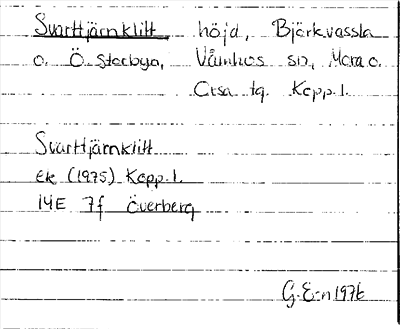 Svarttjärnklitt, höjd, Björkvassla
o. Ö. Stocbyn, Våmhus sn, Mora o.
Orsa tg. Kopp. l.
Svarttjärnklitt
ek (1975) Kopp. l.
14E 7f Överberg
G. E-n 1976